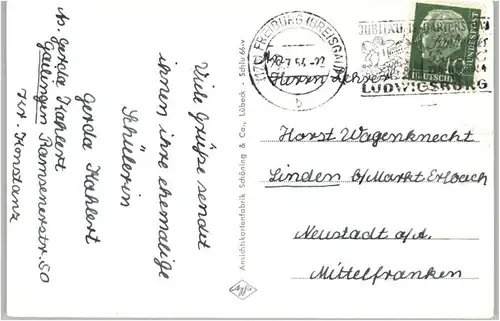 Viele Grüße sendet
ihnen ihre ehemalige
Schülerin
Gerda Kahlert
Gerda Kahlert
Gailingen Ramsenerstr. 50
Kr. Konstanz
Ansichtskartenfabrik Schöning & Co., Lübeck - Schlu 66 v
Agfa
(17b) FREIBURG (BREISGAU) 2
b
LUDWIGSBURG
DEUTSCHE BUNDESPOST
10
Herrn Lehrer
Horst Wagenknecht
Linden b/Markt Erlbach
Neustadt a/A.
Mittelfranken